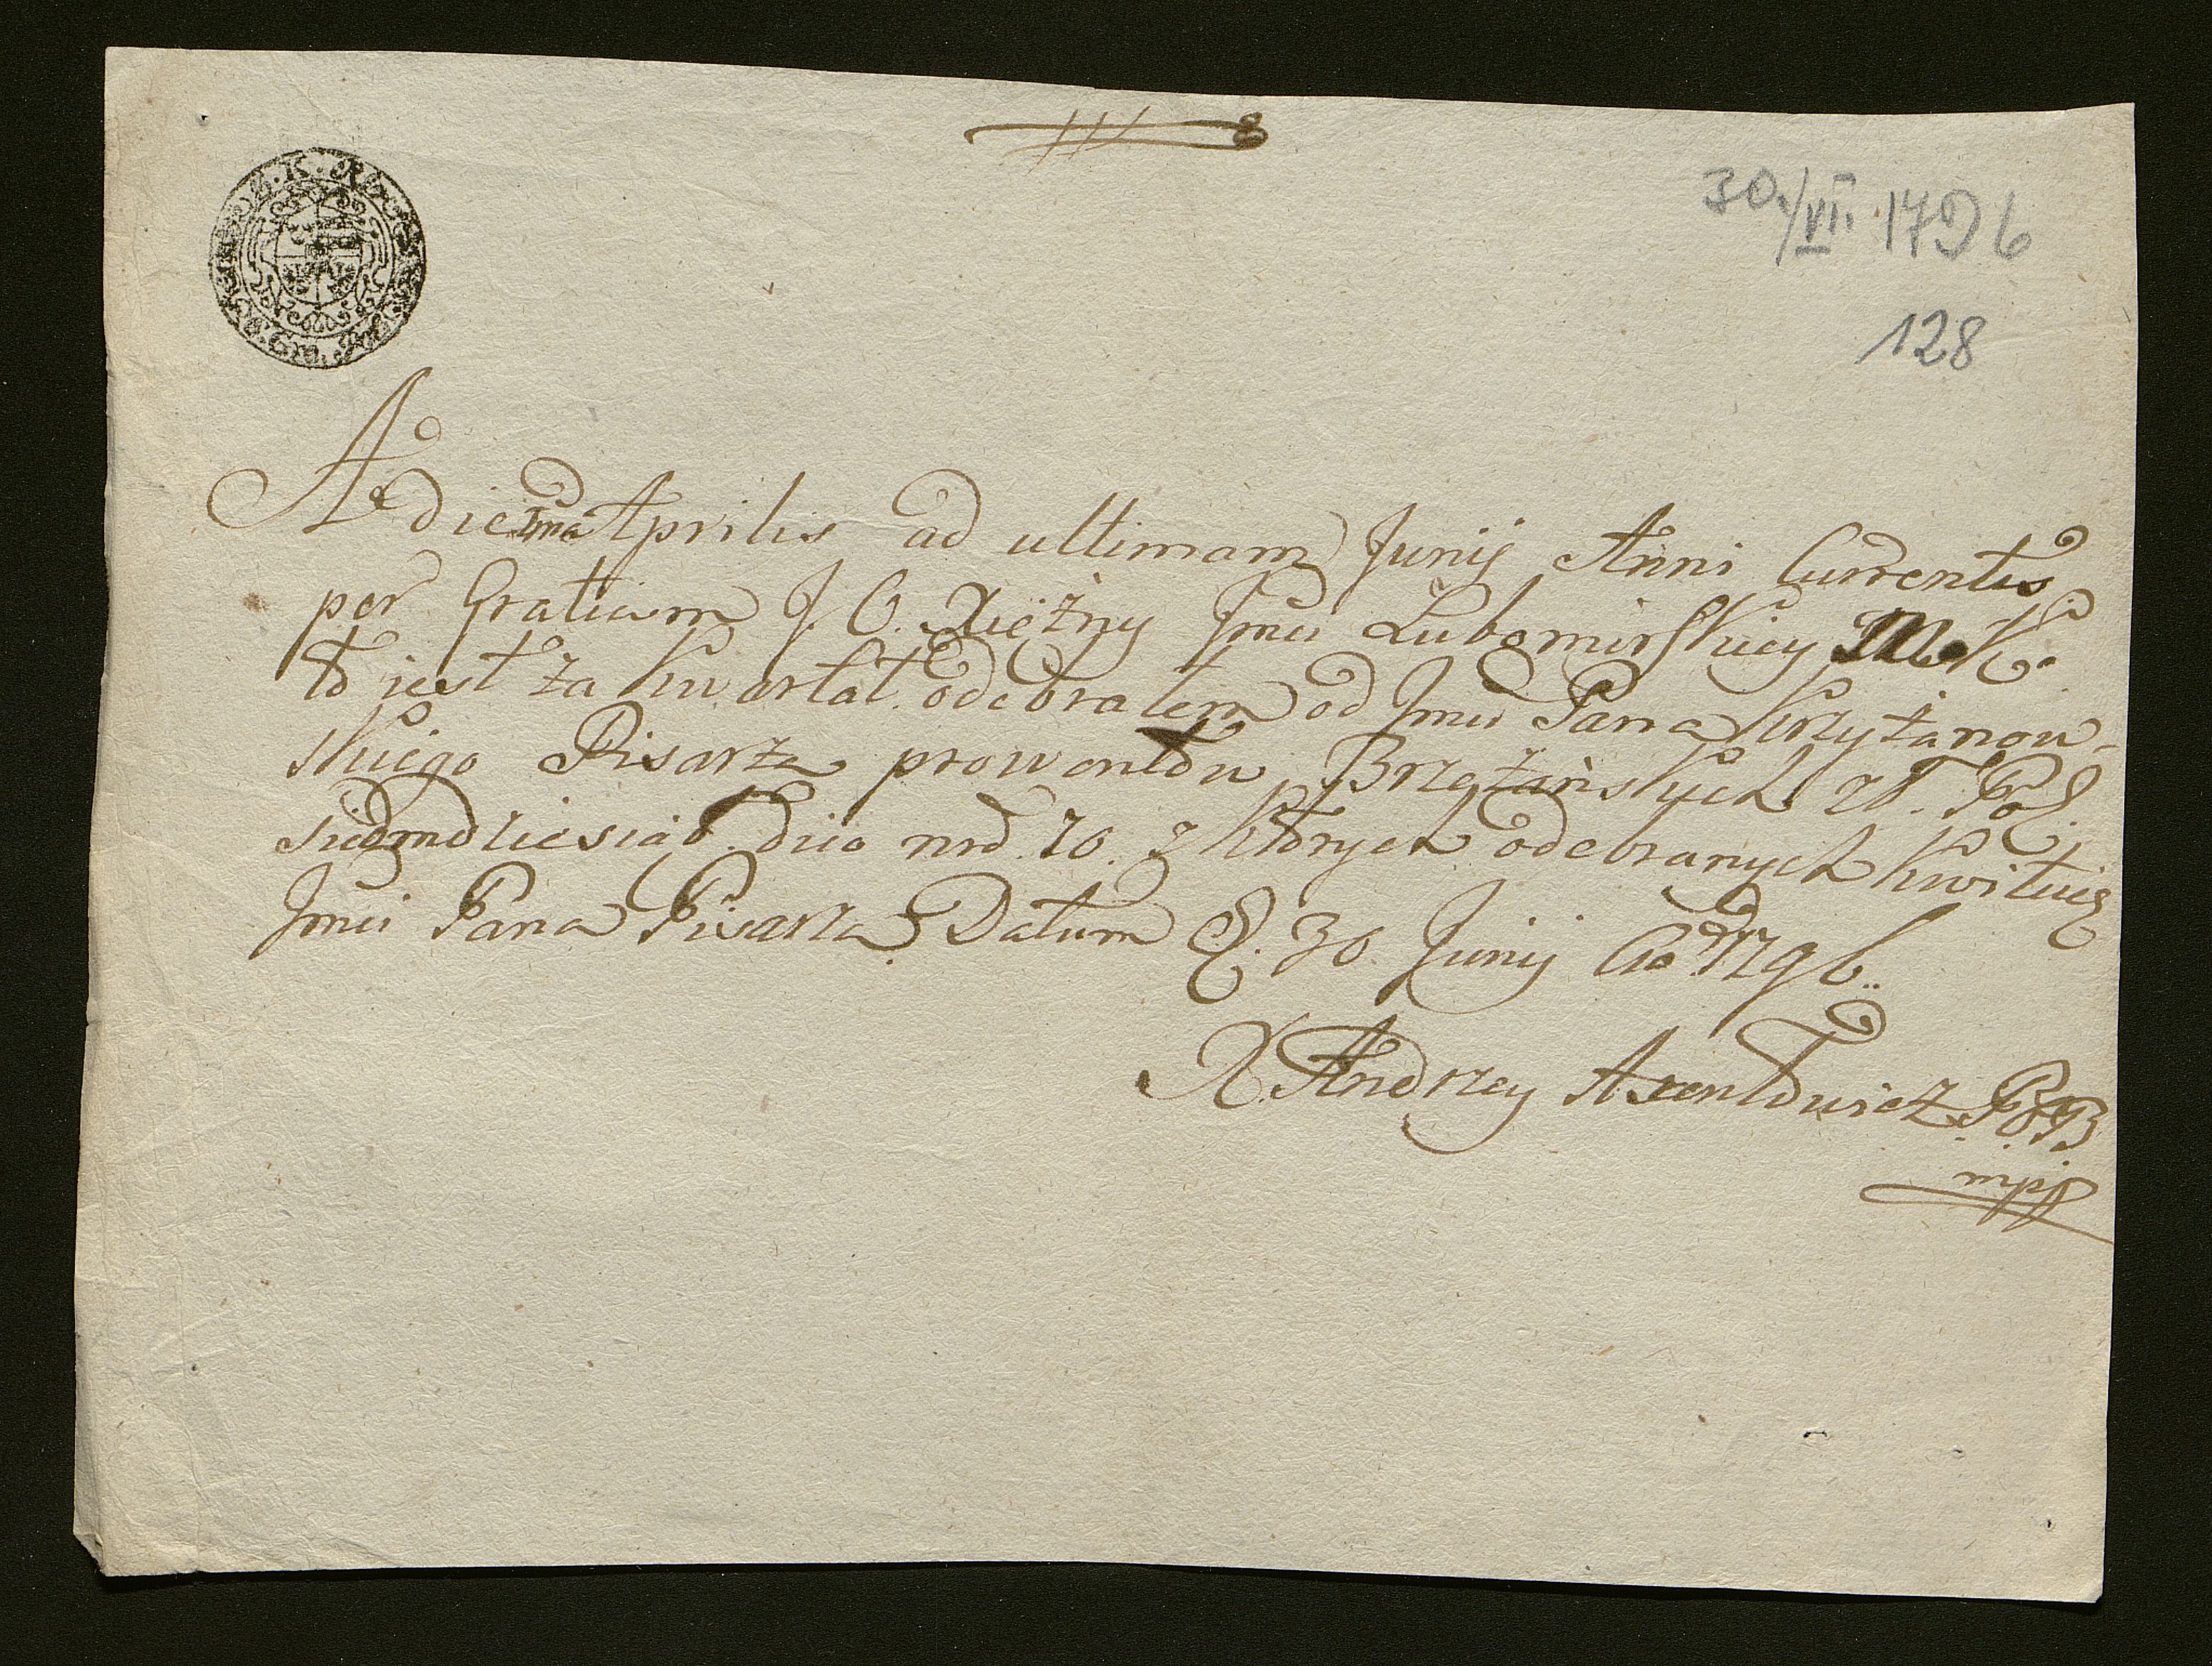 30./VI. 1796
128
A die 1ma Aprilis ad ultimam Junij Anni Currentis
per Gratiam J. O. Xiężny Jmći Lubomirskiey M. K.
to iest za kwartał odebrałem od Jmći Pana Krzyżanow-
skiego Pisarza prowentów Brzeżańskych zł. Pol.
siedmdziesiąt. dico nrō. 70. z których odebranych kwituię
Jmći Pana Pisarza Datum D. 30 Junij Aō 1796..
X. Andrzey Axentowicz P. B.
mpp